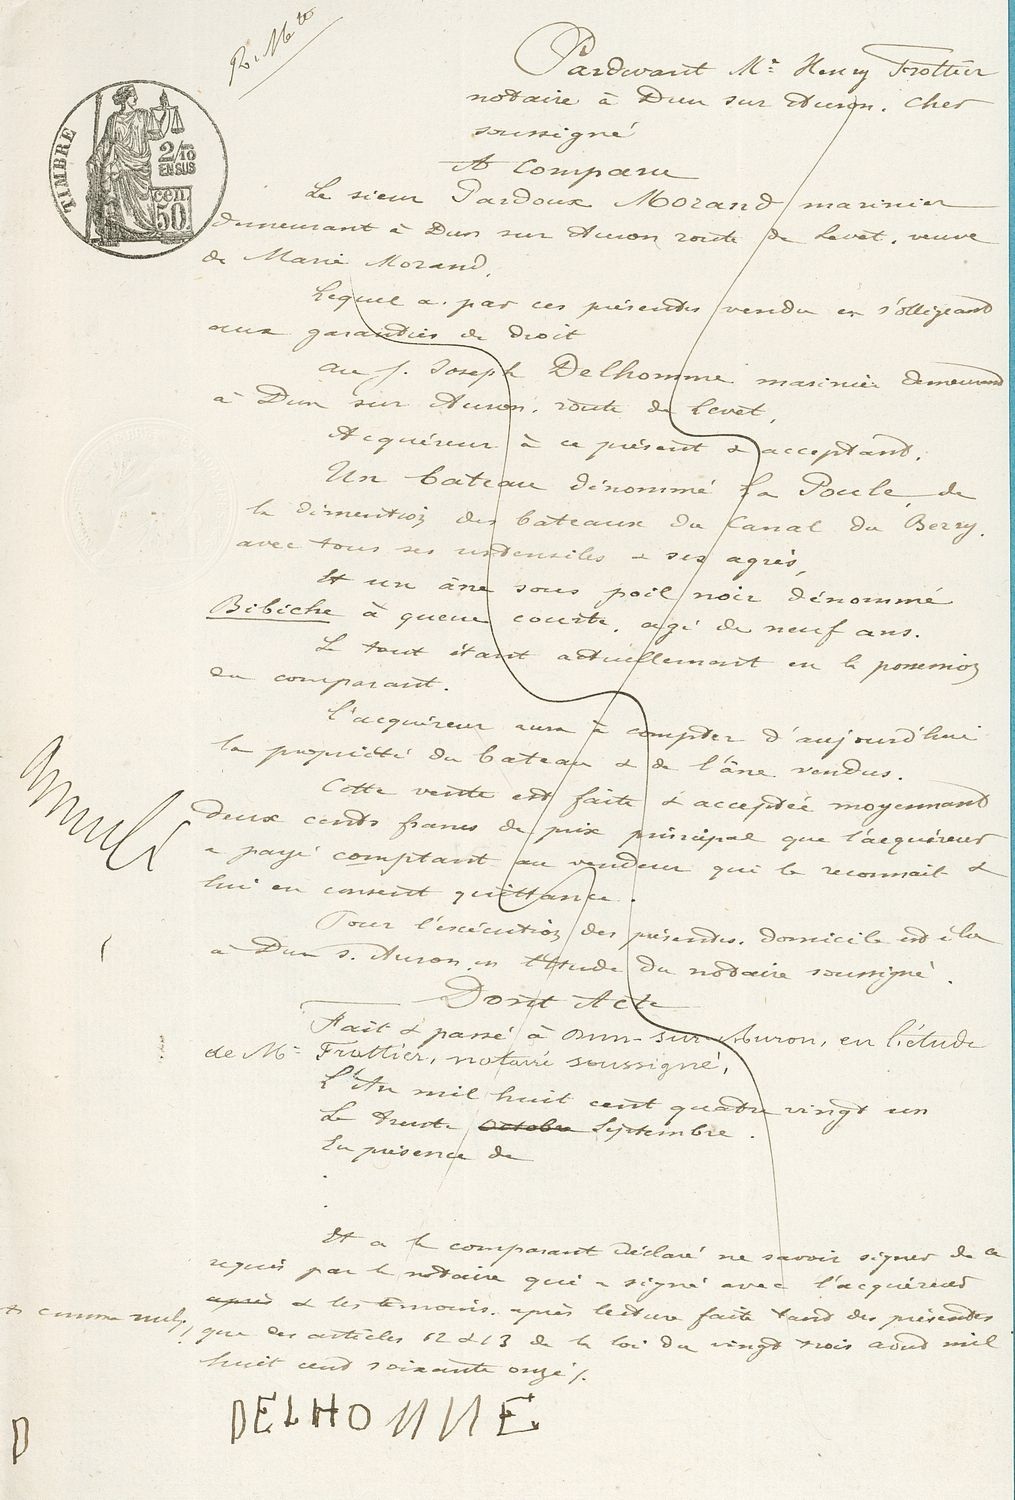 Pardevant Me Henry Trottier
notaire à Dun sur Auron, Cher
soussigné
A Comparu
TIMBRE
2/10
EN SUS
cen
50
Le sieur Pardoux Morand marinier
demeurant à Dun sur Auron route de Levet, veuve
de Marie Morand,
Lequel a par ces présentes vendu en s'obligeant
aux garanties de droit
au s. Joseph Delhomme marinier demeurant
à Dun sur Auron, route de Levet,
Acquéreur à ce présent & acceptant,
Un bateau dénommé La Poule de
la dimention des bateaux du Canal du Berry,
avec tous ses ustensiles & ses agrès,
Et un âne sous poil noir dénommé
Bibiche à queue courte, agé de neuf ans.
Le tout étant actuellement en la possession
du comparant.
L'acquéreur aura à compter d'aujourd'hui
la propriété du bateau & de l'âne vendus.
Cette vente est faite & acceptée moyennant
deux cents francs de prix principal que l'acquéreur
a payé comptant au vendeur qui le reconnait &
lui en consent quittance.
annulé
Pour l'exécution des présentes, domicile est élu
à Dun s. Auron en l'étude du notaire soussigné.
Dont Acte
Fait & passé à Dun-sur-Auron, en l'étude
de Me Trottier, notaire soussigné,
L'An mil huit cent quatre vingt un
Le trente octobre Septembre.
En présence de
Et a le comparant déclaré ne savoir signer de ce
requis par le notaire qui a signé avec l'acquéreur
après & les témoins, après lecture faite tant des présentes
que des articles 12 & 13 de la loi du vingt trois aout mil
huit cent soixante onze/.
+ comme nuls,
DELHOMME
D